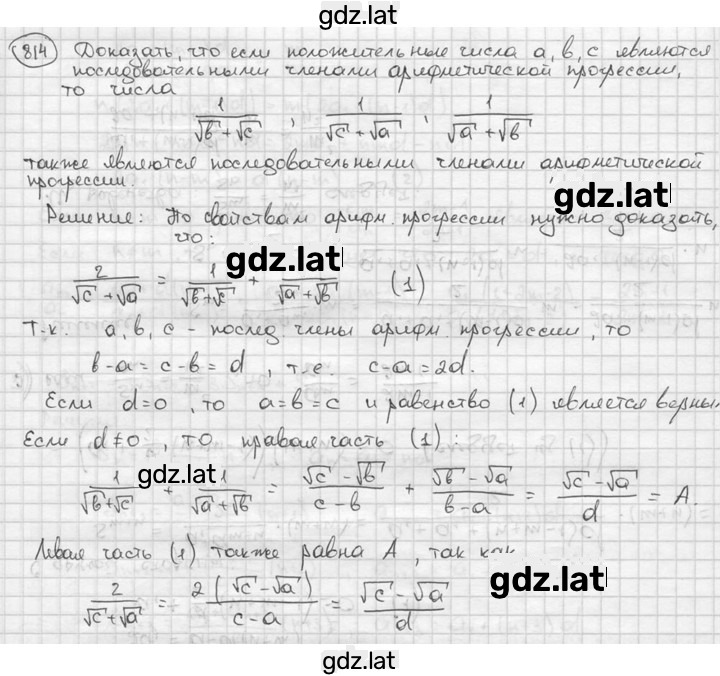 gdz.lat
814 Доказать, что если положительные числа a, b, c являются
последовательными членами арифметической прогрессии,
то числа
1/(√b+√c) , 1/(√c+√a) , 1/(√a+√b)
также являются последовательными членами арифметической
прогрессии.
gdz.lat
Решение: По свойствам арифм. прогрессии нужно доказать,
что:
gdz.lat
2/(√c+√a) = 1/(√b+√c) + 1/(√a+√b) (1)
Т.к. a, b, c - послед. члены арифм. прогрессии, то
b-a = c-b = d , т.е. c-a = 2d.
Если d=0 , то a=b=c и равенство (1) является верны
Если d≠0 , то правая часть (1):
gdz.lat
1/(√b+√c) + 1/(√a+√b) = (√c-√b)/(c-b) + (√b-√a)/(b-a) = (√c-√a)/d = A.
Левая часть (1) также равна A , так как
gdz.lat
2/(√c+√a) = 2(√c-√a)/(c-a) = (√c-√a)/d
gdz.lat